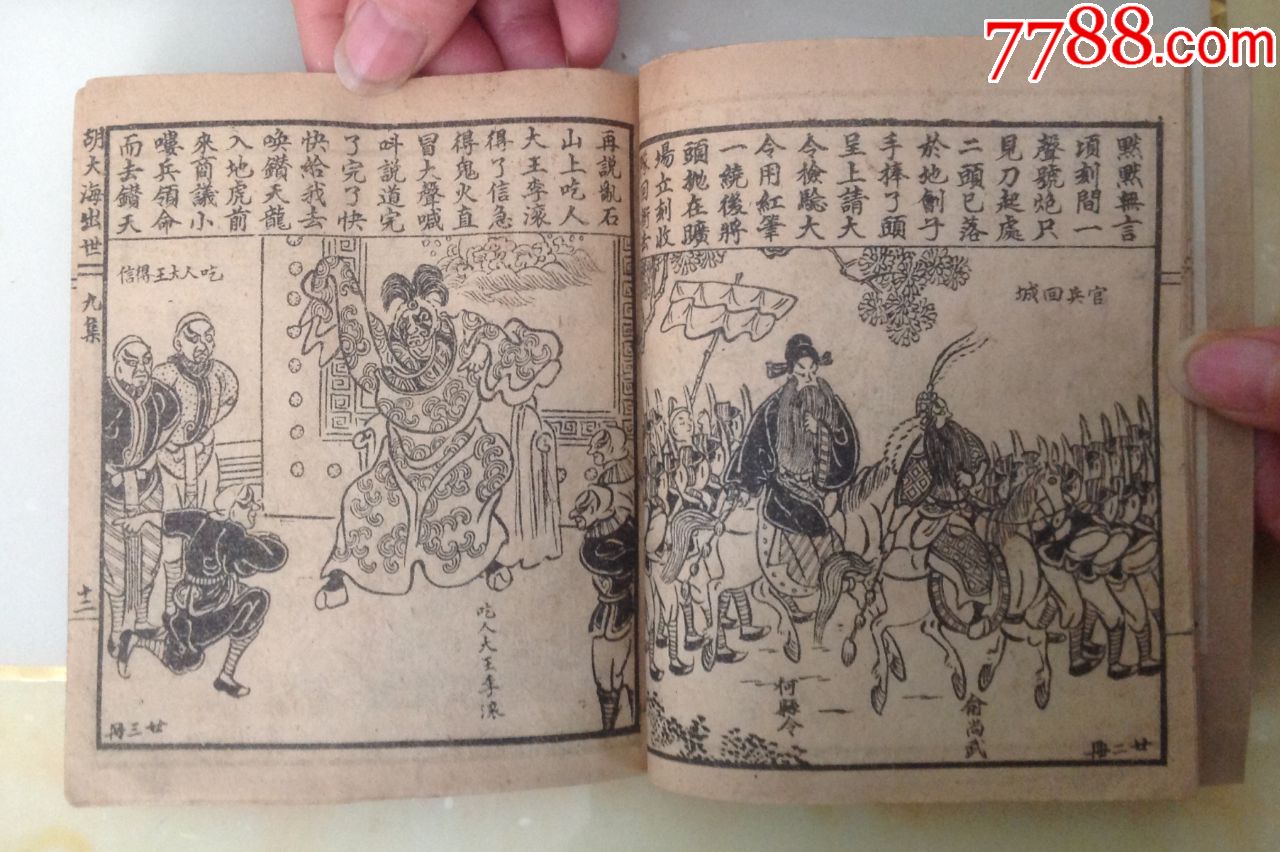 7788.com
默默無言
頃刻間一
聲號炮只
見刀起處
二頭已落
於地劊子
手捧了頭
呈上請大
令檢驗大
令用紅筆
一繞後將
頭拋在曠
場立刻收
回衙去
官兵回城
俞尚武
何縣令
廿二冊
再説亂石
山上吃人
大王李滚
得了信急
得鬼火直
冒大聲喊
呌説道完
了完了快
快給我去
喚鑽天龍
入地虎前
來商議小
嘍兵領命
而去鑽天
吃人大王得信
吃人大王李滚
廿三冊
胡大海出世
九集
十二